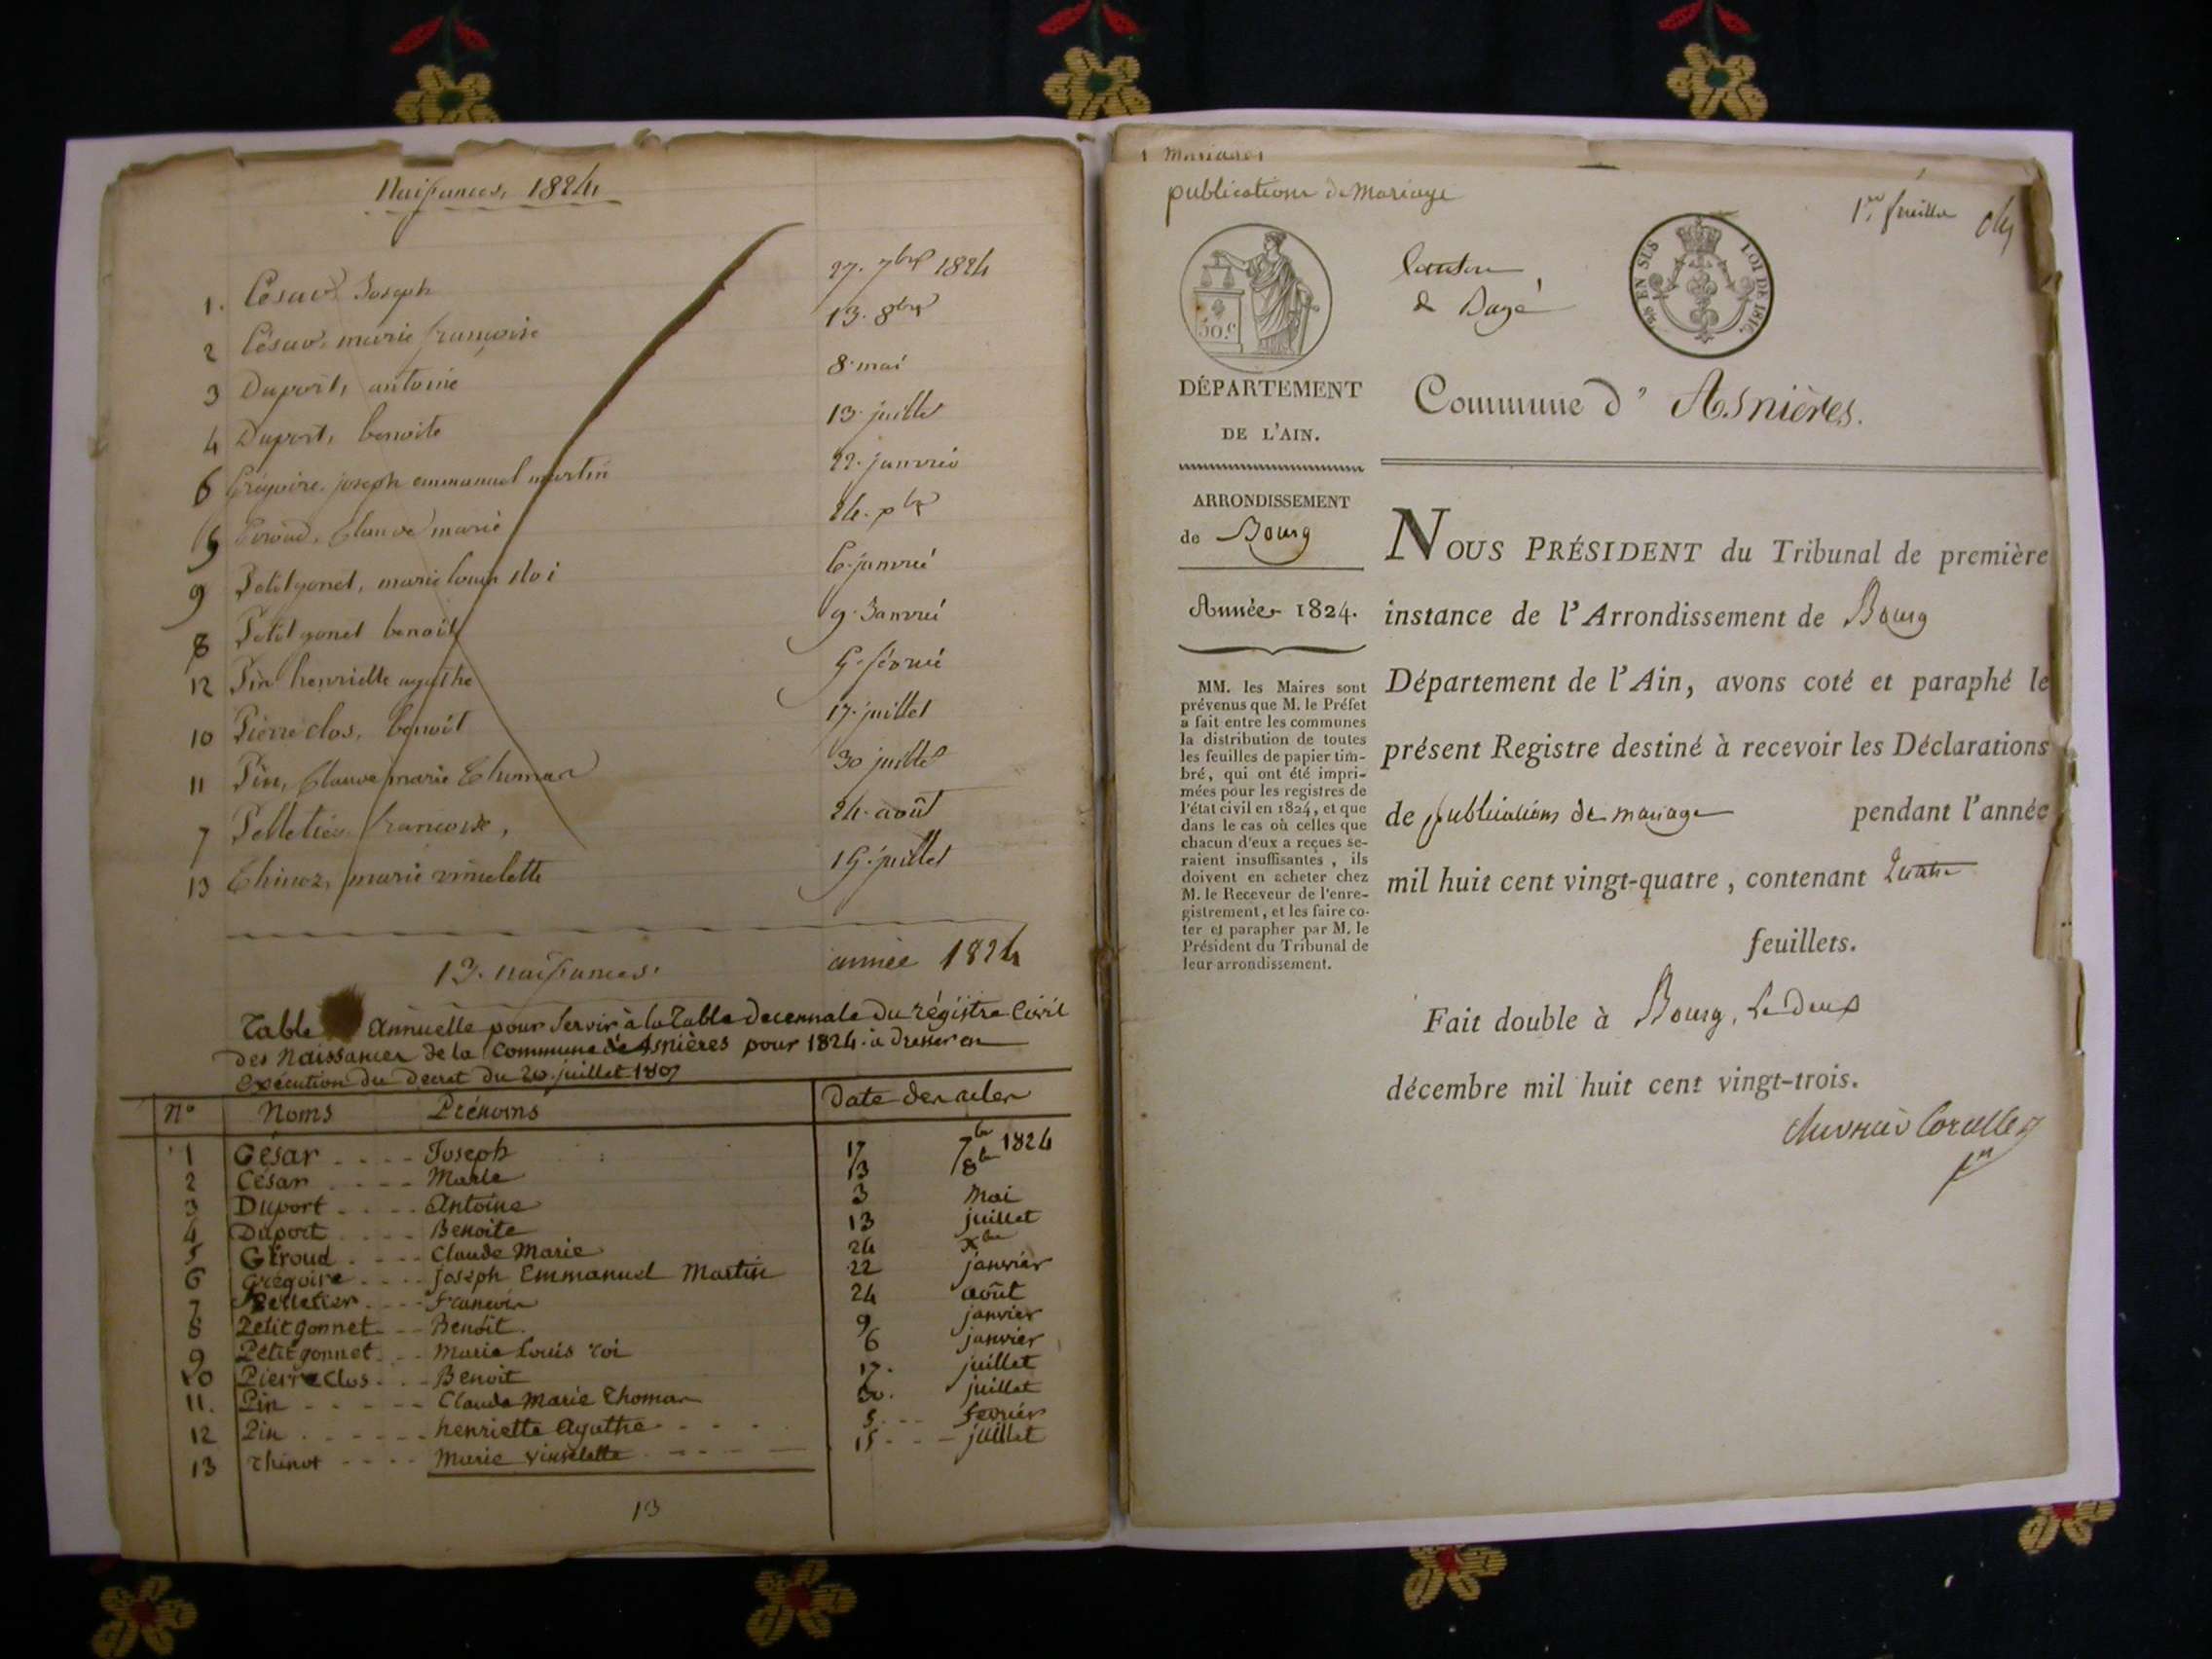 Naissances, 1824
1. César Joseph 27. 7bre 1824
2 César, marie françoise 13. 8bre
3 Duport, antoine 8. mai
4 Duport, benoite 13. juillet
6 Grégoire. joseph emmanuel martin 22. janvier
5 Giroud, Claude marie 24. xbre
9 Petitgonet, marie louis 6. janvié
8 Petitgonet benoit 9. Janvié
12 Pin henriette agathe 5. févrié
10 Pierreclos, benoit 17. juillet
11 Pin, Claude marie Thomas 30 juillet
7 Pelletier françois, 24. août
13 Thinoz, marie vinselette 15. juillet
13. naissances. année 1824
Table Annuelle pour Servir à la Table Decennale Du régistre Civil
Des Naissances de la Commune de Asnières pour 1824. à Dresser en
Exécution Du Decret Du 20. juillet 1807
N° Noms Prénoms Date des actes
1 César .... Joseph 17 7bre 1824
2 César .... Marie 13 8bre
3 Duport .... Antoine 3 Mai
4 Duport .... Benoite 13 juillet
5 Giroud .... Claude Marie 24 xbre
6 Grégoire .... joseph Emmanuel Martin 22 janvier
7 Pelletier .... francois 24 août
8 Petitgonnet .. Benoit 9 janvier
9 Petitgonnet ... Marie Louis roi 6 janvier
10 Pierreclos ... Benoit 17. juillet
11. Pin ...... Claude Marie Thomas 30. juillet
12 Pin ...... henriette Agathe .... 5... fevrier
13 Thinot .... Marie vinselette .... 15... juillet
13
publications de Mariage
1re feuille
Canton
de Bagé
50.C
EN SUS LOI DE 1816.
DÉPARTEMENT
DE L'AIN.
Commune d' Asnières.
ARRONDISSEMENT
de Bourg
Année 1824.
MM. les Maires sont
prévenus que M. le Préfet
a fait entre les communes
la distribution de toutes
les feuilles de papier tim-
bré, qui ont été impri-
mées pour les registres de
l'état civil en 1824, et que
dans le cas où celles que
chacun d'eux a reçues se-
raient insuffisantes, ils
doivent en acheter chez
M. le Receveur de l'enre-
gistrement, et les faire co-
ter et parapher par M. le
Président du Tribunal de
leur arrondissement.
NOUS PRÉSIDENT du Tribunal de première
instance de l'Arrondissement de Bourg
Département de l'Ain, avons coté et paraphé le
présent Registre destiné à recevoir les Déclarations
de publications de mariage pendant l'année
mil huit cent vingt-quatre, contenant quatre
feuillets.
Fait double à Bourg, le deux
décembre mil huit cent vingt-trois.